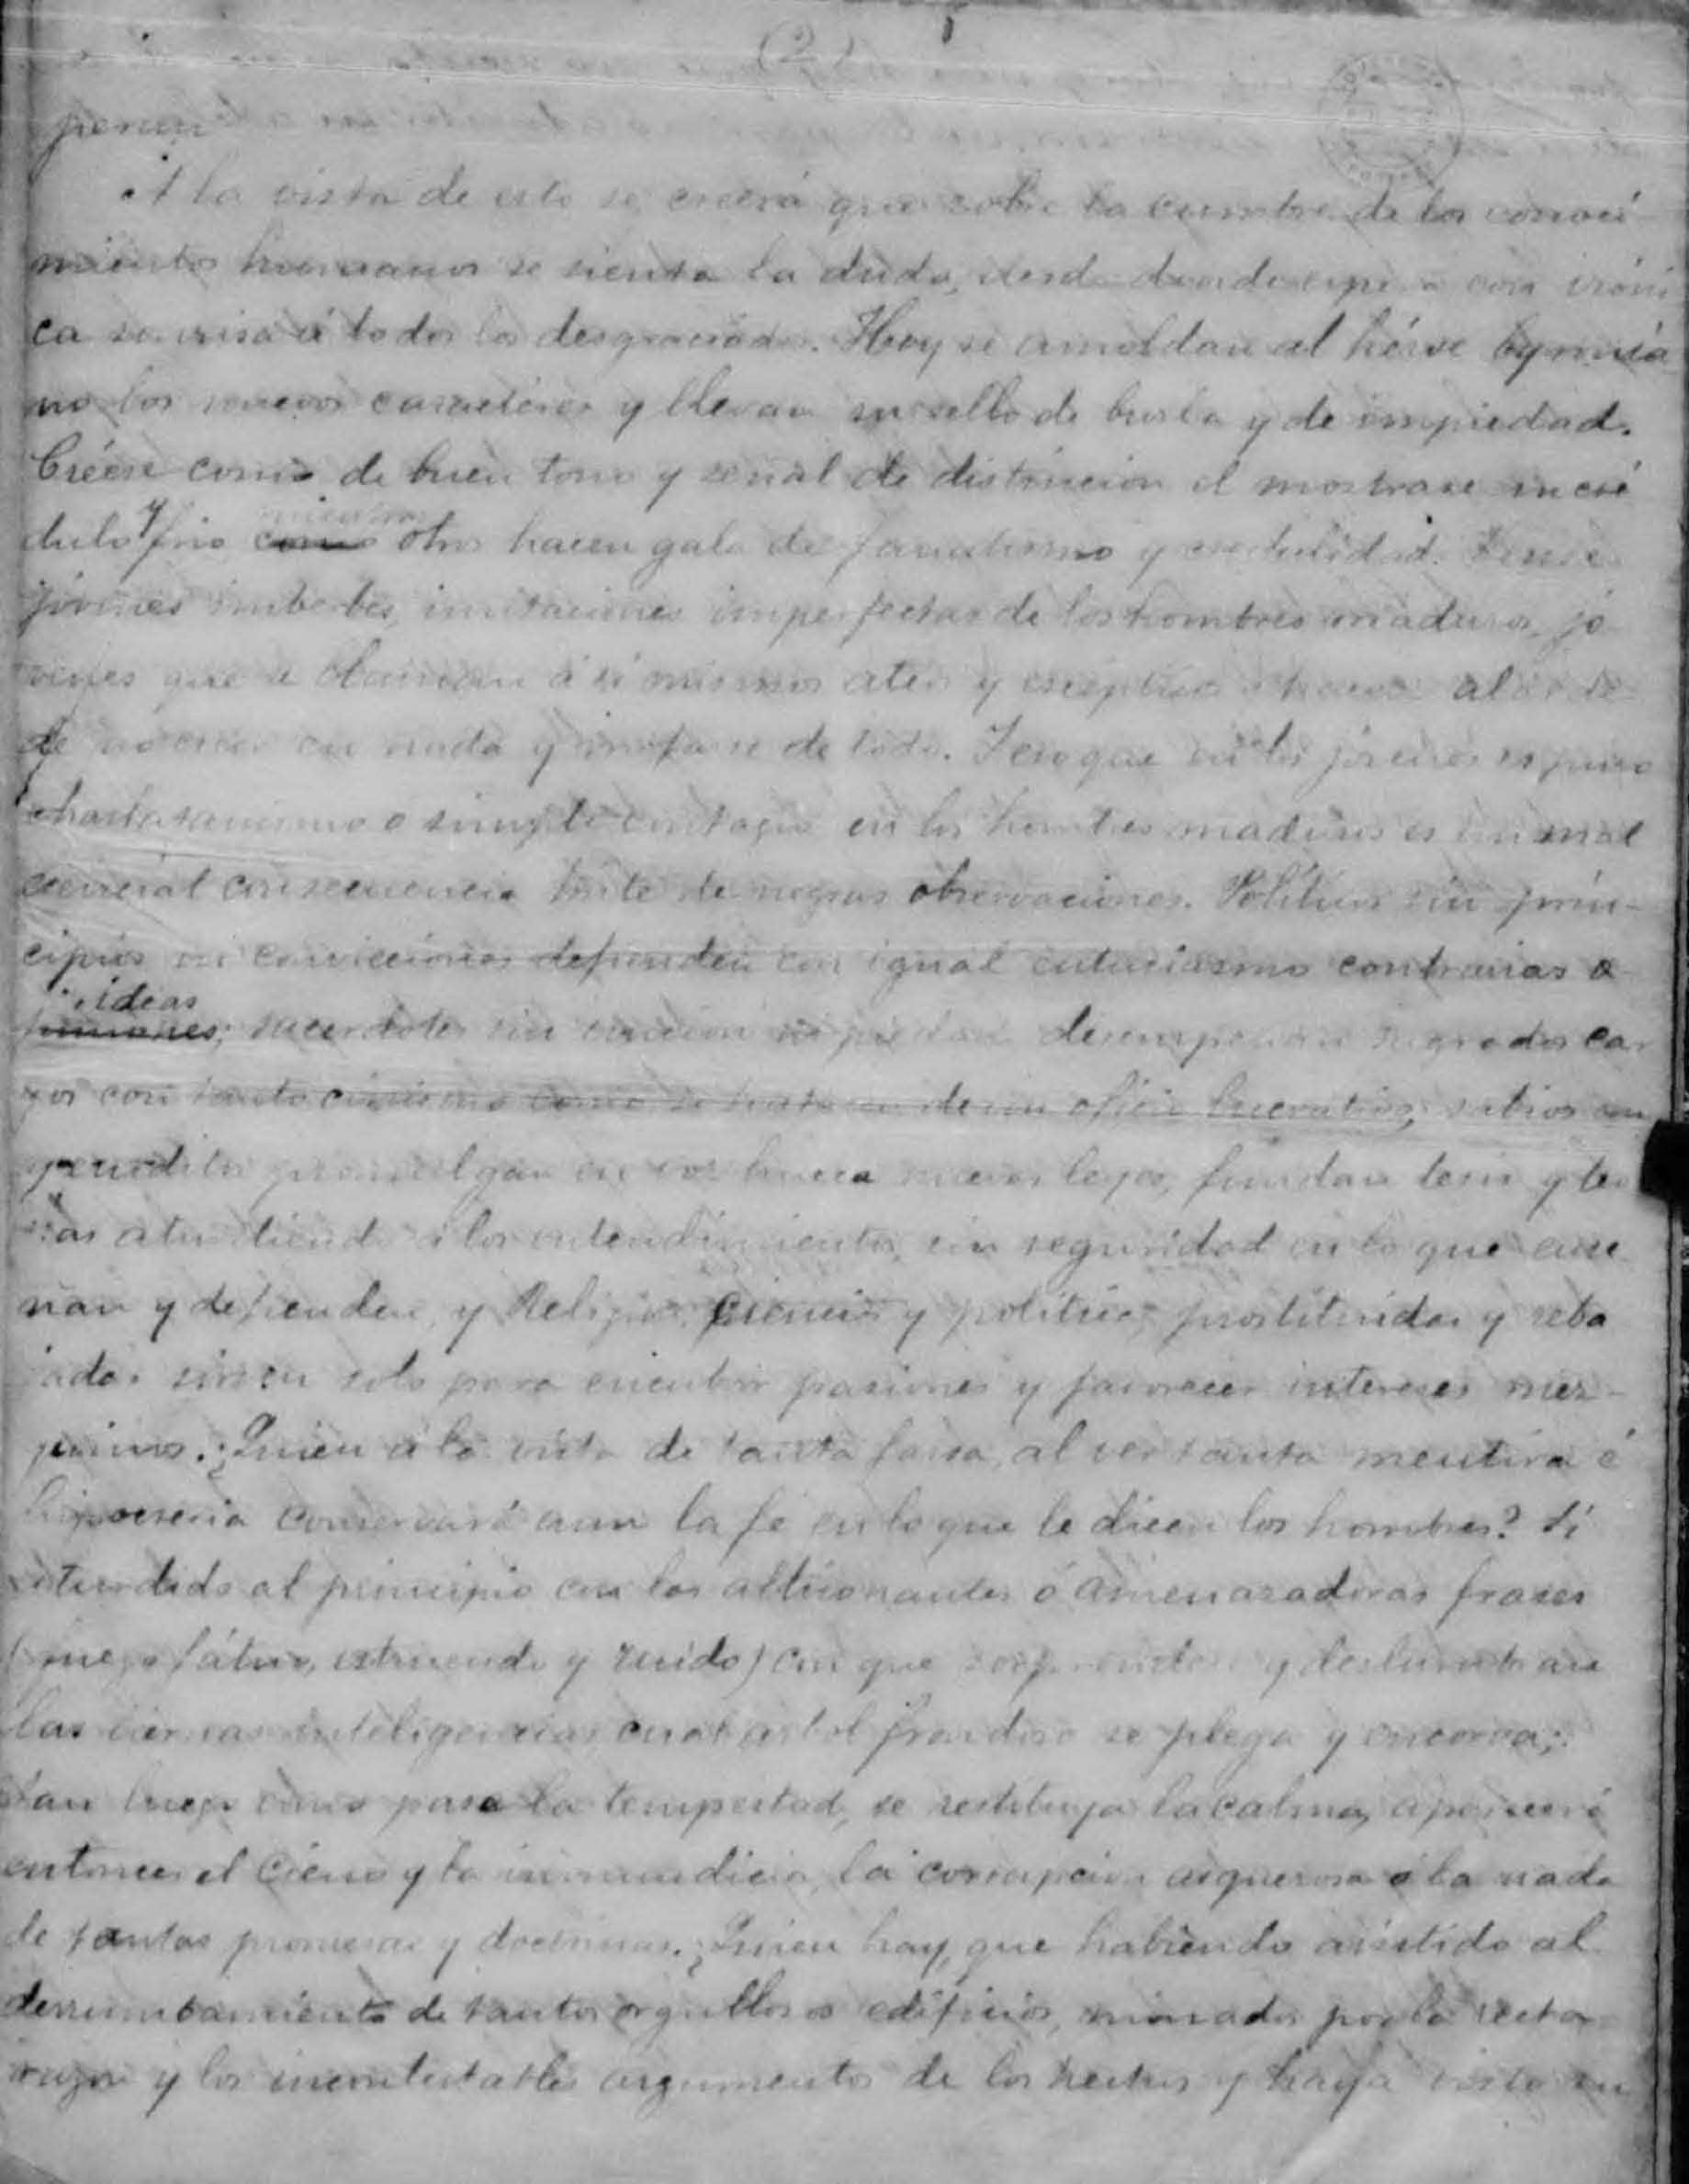 (2)
pensar
A la vista de esto se creerá que sobre la cumbre de los conoci-
mientos humanos se sienta la duda, desde donde con iróni
ca sonrisa á todos los desgraciados. Hoy se amoldan al héroe byronia
no los nuevos caractéres y llevan su sello de burla y de impiedad.
Créese como de buen tono y señal de distincion el mostrarse incré
dulo y frio como mientras otros hacen gala de fanatismo y credulidad.
jóvenes imberbes, imitaciones imperfectas de los hombres maduros, jó
venes que se llaman á sí mismos ateos y excépticos hacen alarde
de no creer en nada y mofarse de todo. que en los jóvenes es puro
charlatanismo o simple contagio en los hombres maduros es un mal
esencial consecuencia triste de negras observaciones. Políticos sin prin-
cipios ni convicciones defienden con igual entusiasmo contrarias o
piniones ideas; sacerdotes sin ni piedad desempeñan sagrados car
gos con tanto cinismo como se tratara de un oficio lucrativo; sabios
y eruditos promulgan en voz hueca nuevas leyes, fundan tesis y teo
rías aturdiendo á los entendimientos, sin seguridad en lo que ense
ñan y defienden, y Religion, ciencia y política, prostituidas y reba
jadas sirven solo para encubrir pasiones y favorecer intereses mez-
quinos. ¿Quien á la vista de tanta farsa, al ver tanta mentira é
hipocresia conservará aun la fé en lo que le dicen los hombres? Si
aturdido al principio con las altisonantes ó amenazadoras frases
(fuego fátuo, estruendo y ruido) con que sorprenden y deslumbran
las tiernas inteligencias, cual arbol frondoso se plega y encorva;
tan luego como pasa la tempestad, se restituya la calma, aparecerá
entonces el cieno y la inmundicia, la corrupcion asquerosa ó la nada
de tantas promesas y doctrinas. ¿Quien hay, que habiendo asistido al
derrumbamiento de tantos orgullosos edificios, minados por la recta
razon y los incontestables argumentos de los hechos y haya visto en